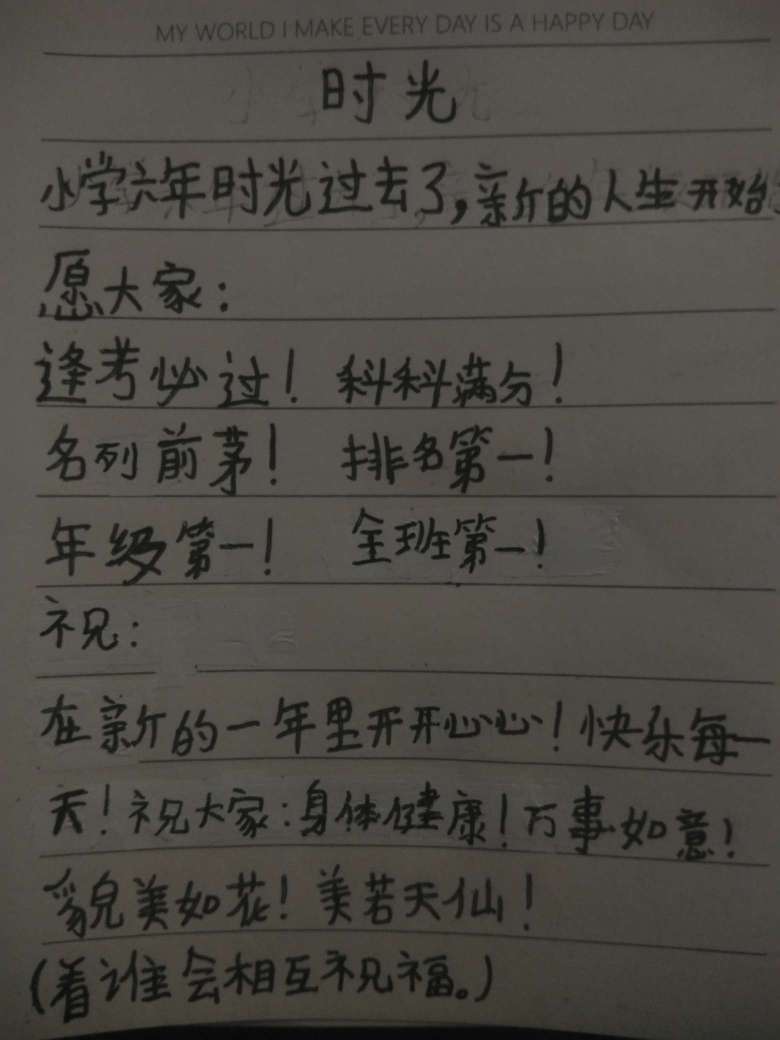 MY WORLD I MAKE EVERY DAY IS A HAPPY DAY
时光
小学六年时光过去了,新的人生开始
愿大家:
逢考必过! 科科满分!
名列前茅! 排名第一!
年级第一! 全班第一!
祝:
在新的一年里开开心心!快乐每一
天!祝大家:身体健康!万事如意!
貌美如花!美若天仙!
(看谁会相互祝福。)